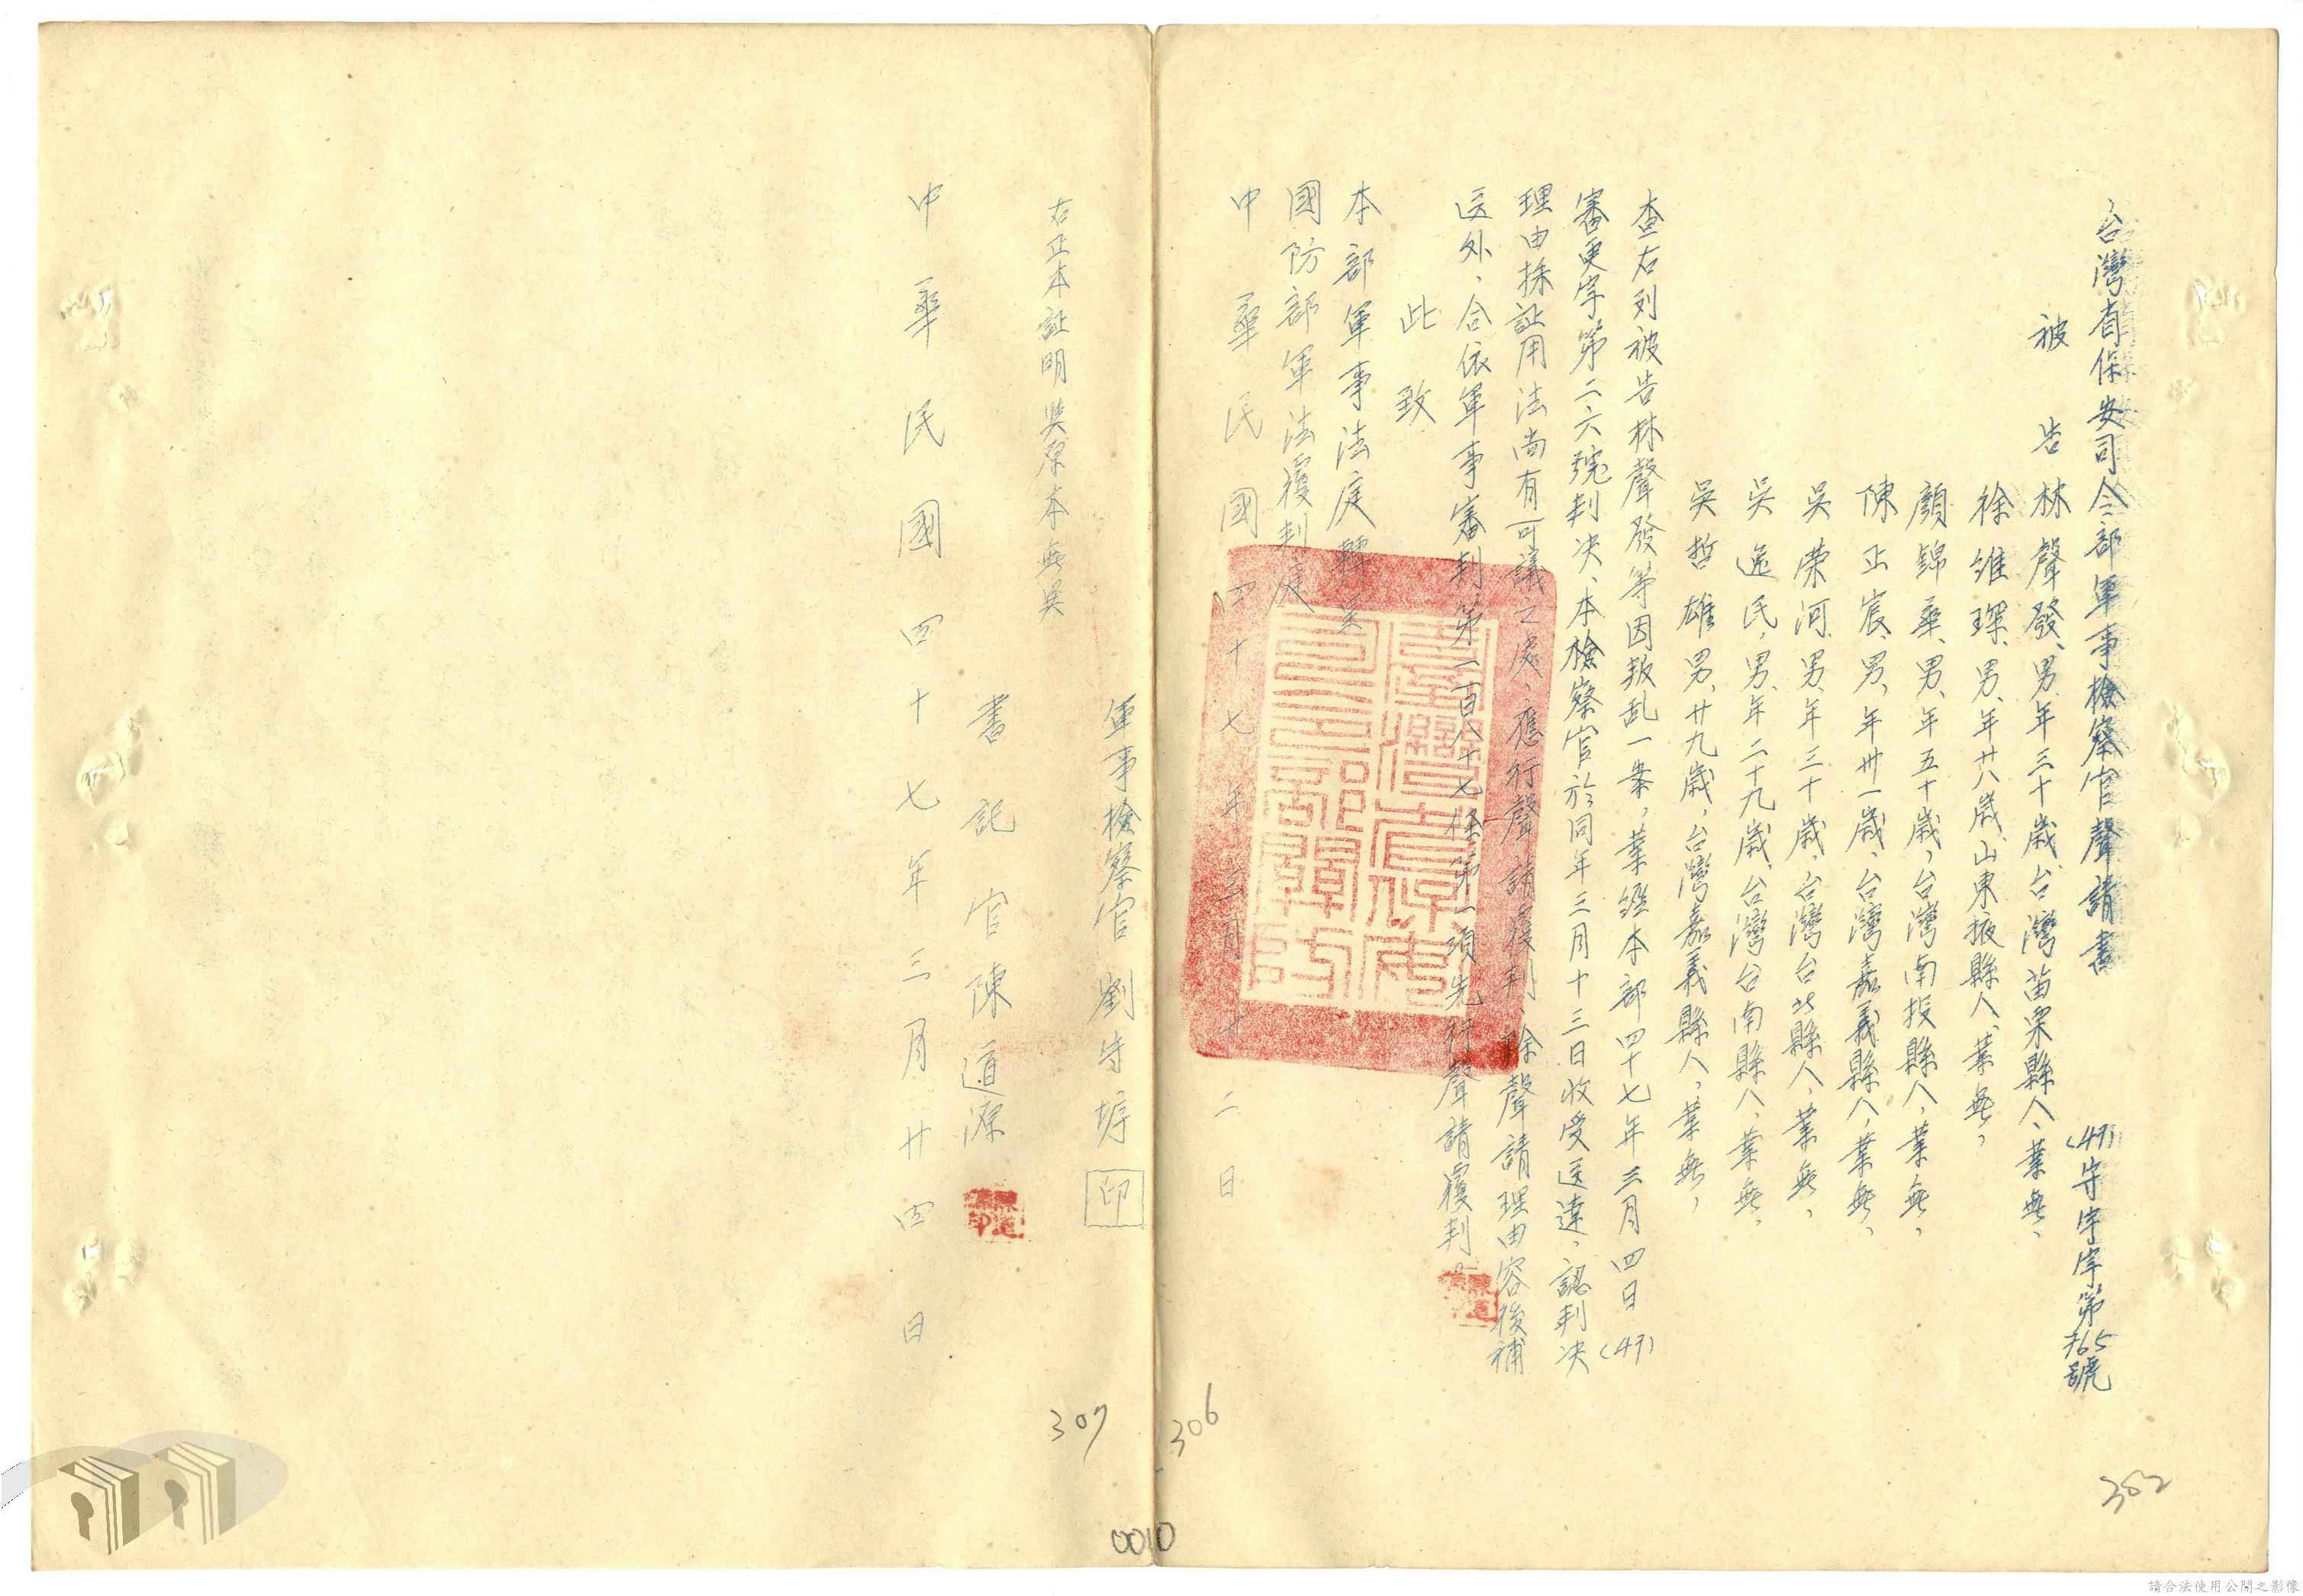 台灣省保安司令部軍事檢察官聲請書
(47)守字字第765號
被告林聲發、男、年三十歲、台灣苗栗縣人、業無、
徐維琛、男、年廿八歲、山東掖縣人、業無、
顏錦華、男、年五十歲、台灣南投縣人、業無、
陳正宸、男、年卅一歲、台灣嘉義縣人、業無、
吳榮河、男、年三十歲、台灣台北縣人、業無、
吳逸民、男、年二十九歲、台灣台南縣人、業無、
吳哲雄、男、廿九歲、台灣嘉義縣人、業無、
查右列被告林聲發等因叛乱一案，業經本部四十七年三月四日(47)
審更字第二六號判决、本檢察官於同年三月十三日收受送達、認判决
理由採証用法尚有可議之處、應行聲請覆判、除聲請理由容後補
送外、合依軍事審判第一百八十七條第一項先行聲請覆判。
此致
本部軍事法庭轉呈
國防部軍法覆判庭
中華民國四十七年三月廿二日
軍事檢察官劉守
印
右正本証明與原本無異
書記官陳道源
中華民國四十七年三月廿四日
307
306
352
0010
請合法使用公開之影像